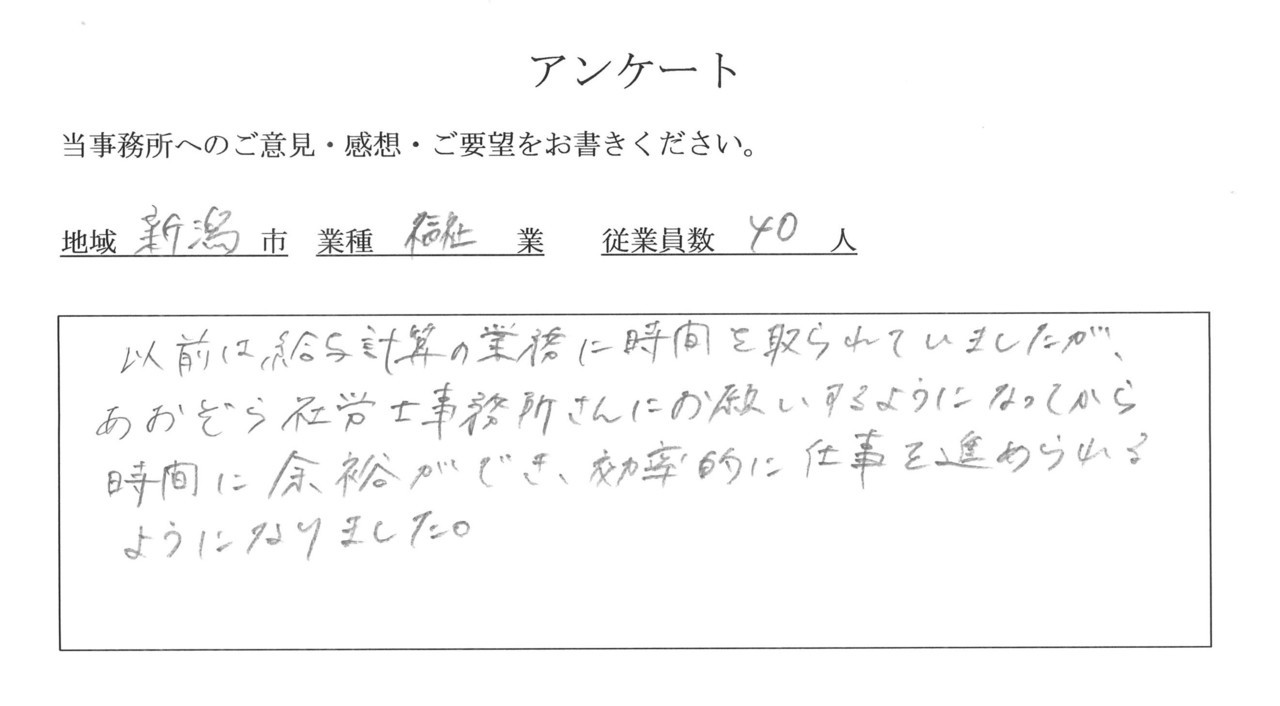 アンケート
当事務所へのご意見・感想・ご要望をお書きください。
地域 新潟 市 業種 福祉 業 従業員数 40 人
以前は、給与計算の業務に時間を取られていましたが、
あおぞら社労士事務所さんにお願いするようになってから
時間に余裕ができ、効率的に仕事を進められる
ようになりました。